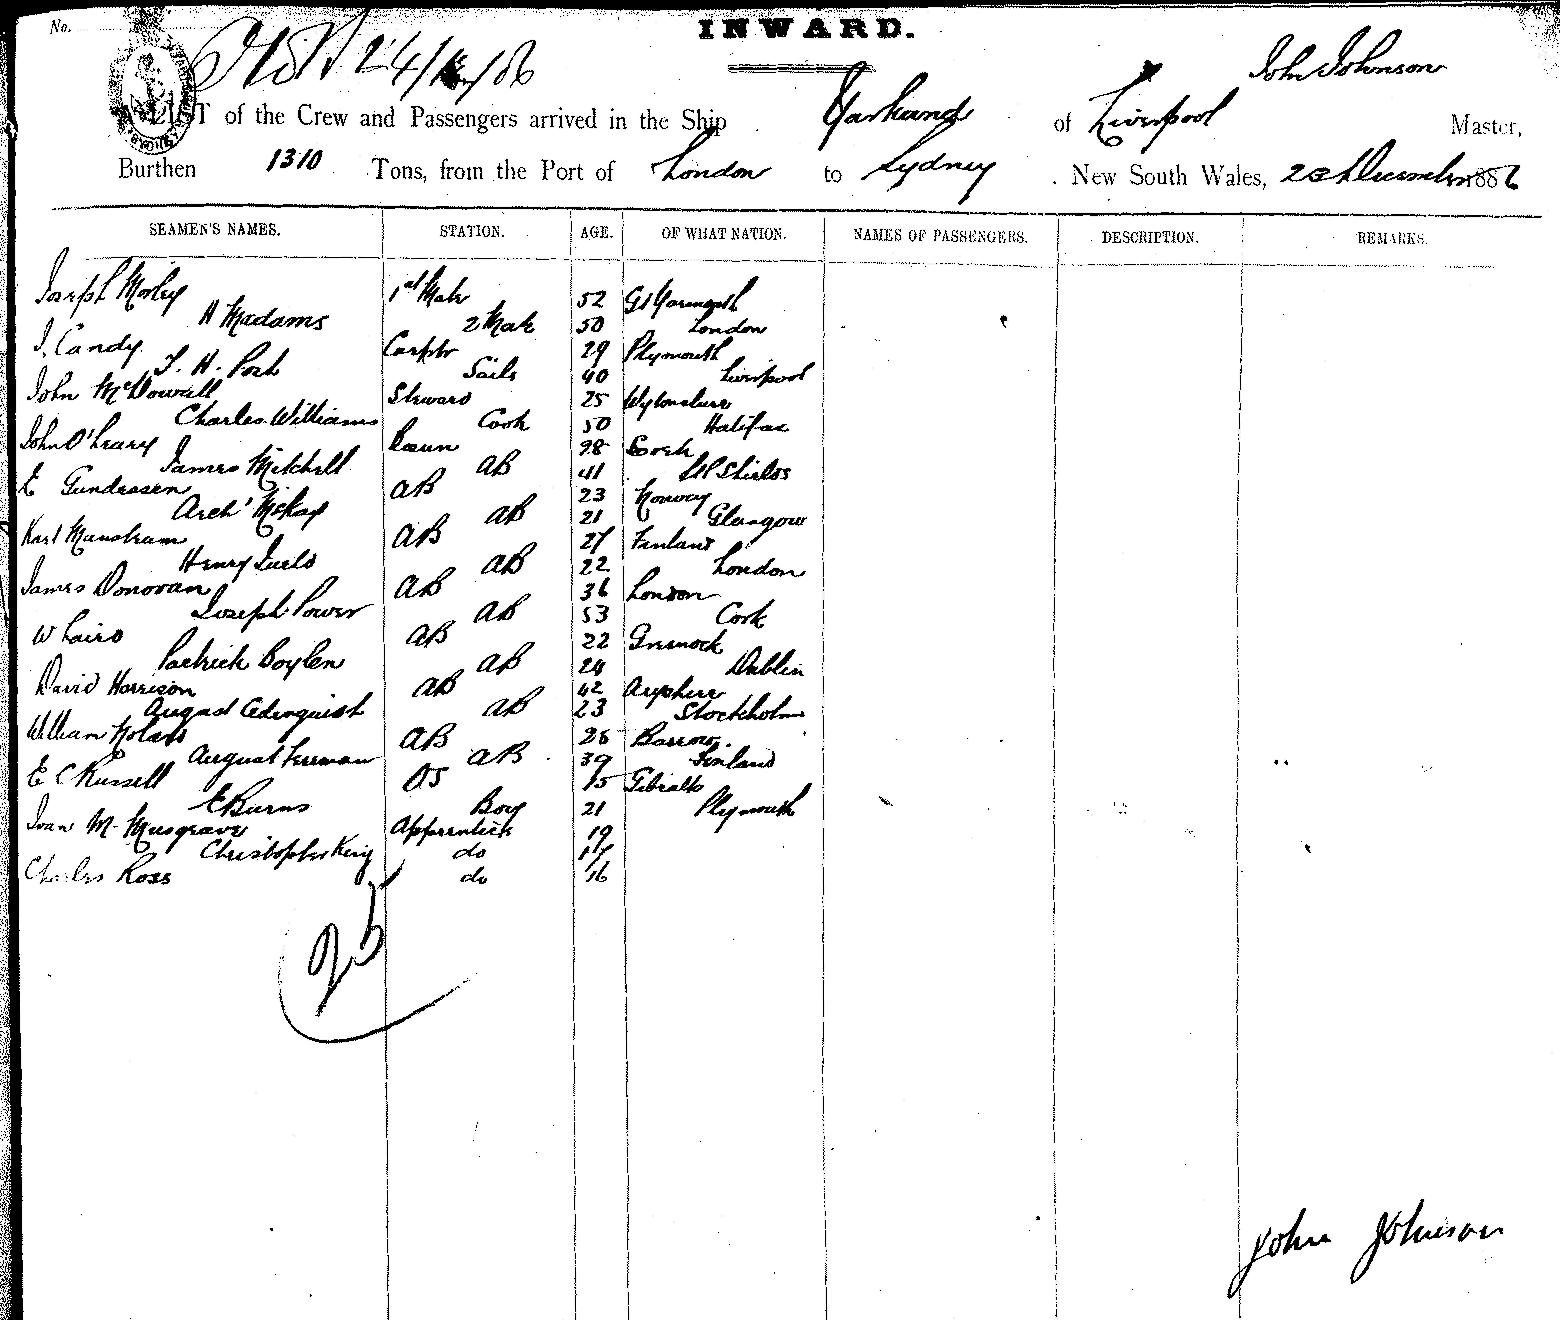 No.
INWARD.
24/12/86
John Johnson
A LIST of the Crew and Passengers arrived in the Ship Yarkand of Liverpool Master,
Burthen 1310 Tons, from the Port of London to Sydney . New South Wales, 1886
SEAMEN'S NAMES. STATION. AGE. OF WHAT NATION. NAMES OF PASSENGERS. DESCRIPTION. REMARKS.
Joseph Morley 1st Mate 52 Gt Yarmouth
H Madams 2 Mate 50 London
J. Candy Carptr 29 Plymouth
T. H. Sails 40 Liverpool
John McDowall Steward 25
Charles Williams Cook 50 Halifax
John O'Leary 28 Cork
James Mitchell AB 41 Shields
E Gundersen AB 23 Norway
Archd McKay AB 21 Glasgow
Karl AB 27 Finland
Henry AB 22 London
James Donovan AB 36 London
Joseph Power AB 53 Cork
W Laird AB 22 Greenock
Patrick Boylen AB 24 Dublin
David Harrison AB 42 Ayrshire
August AB 23 Stockholm
William AB 28 Barrow.
August AB 39 Finland
E C Russell OS 15
E Burns Boy 21 Plymouth
Ivan M. Musgrave Apprentice 19
Christopher King do 17
Charles Ross do 16
25
John Johnson